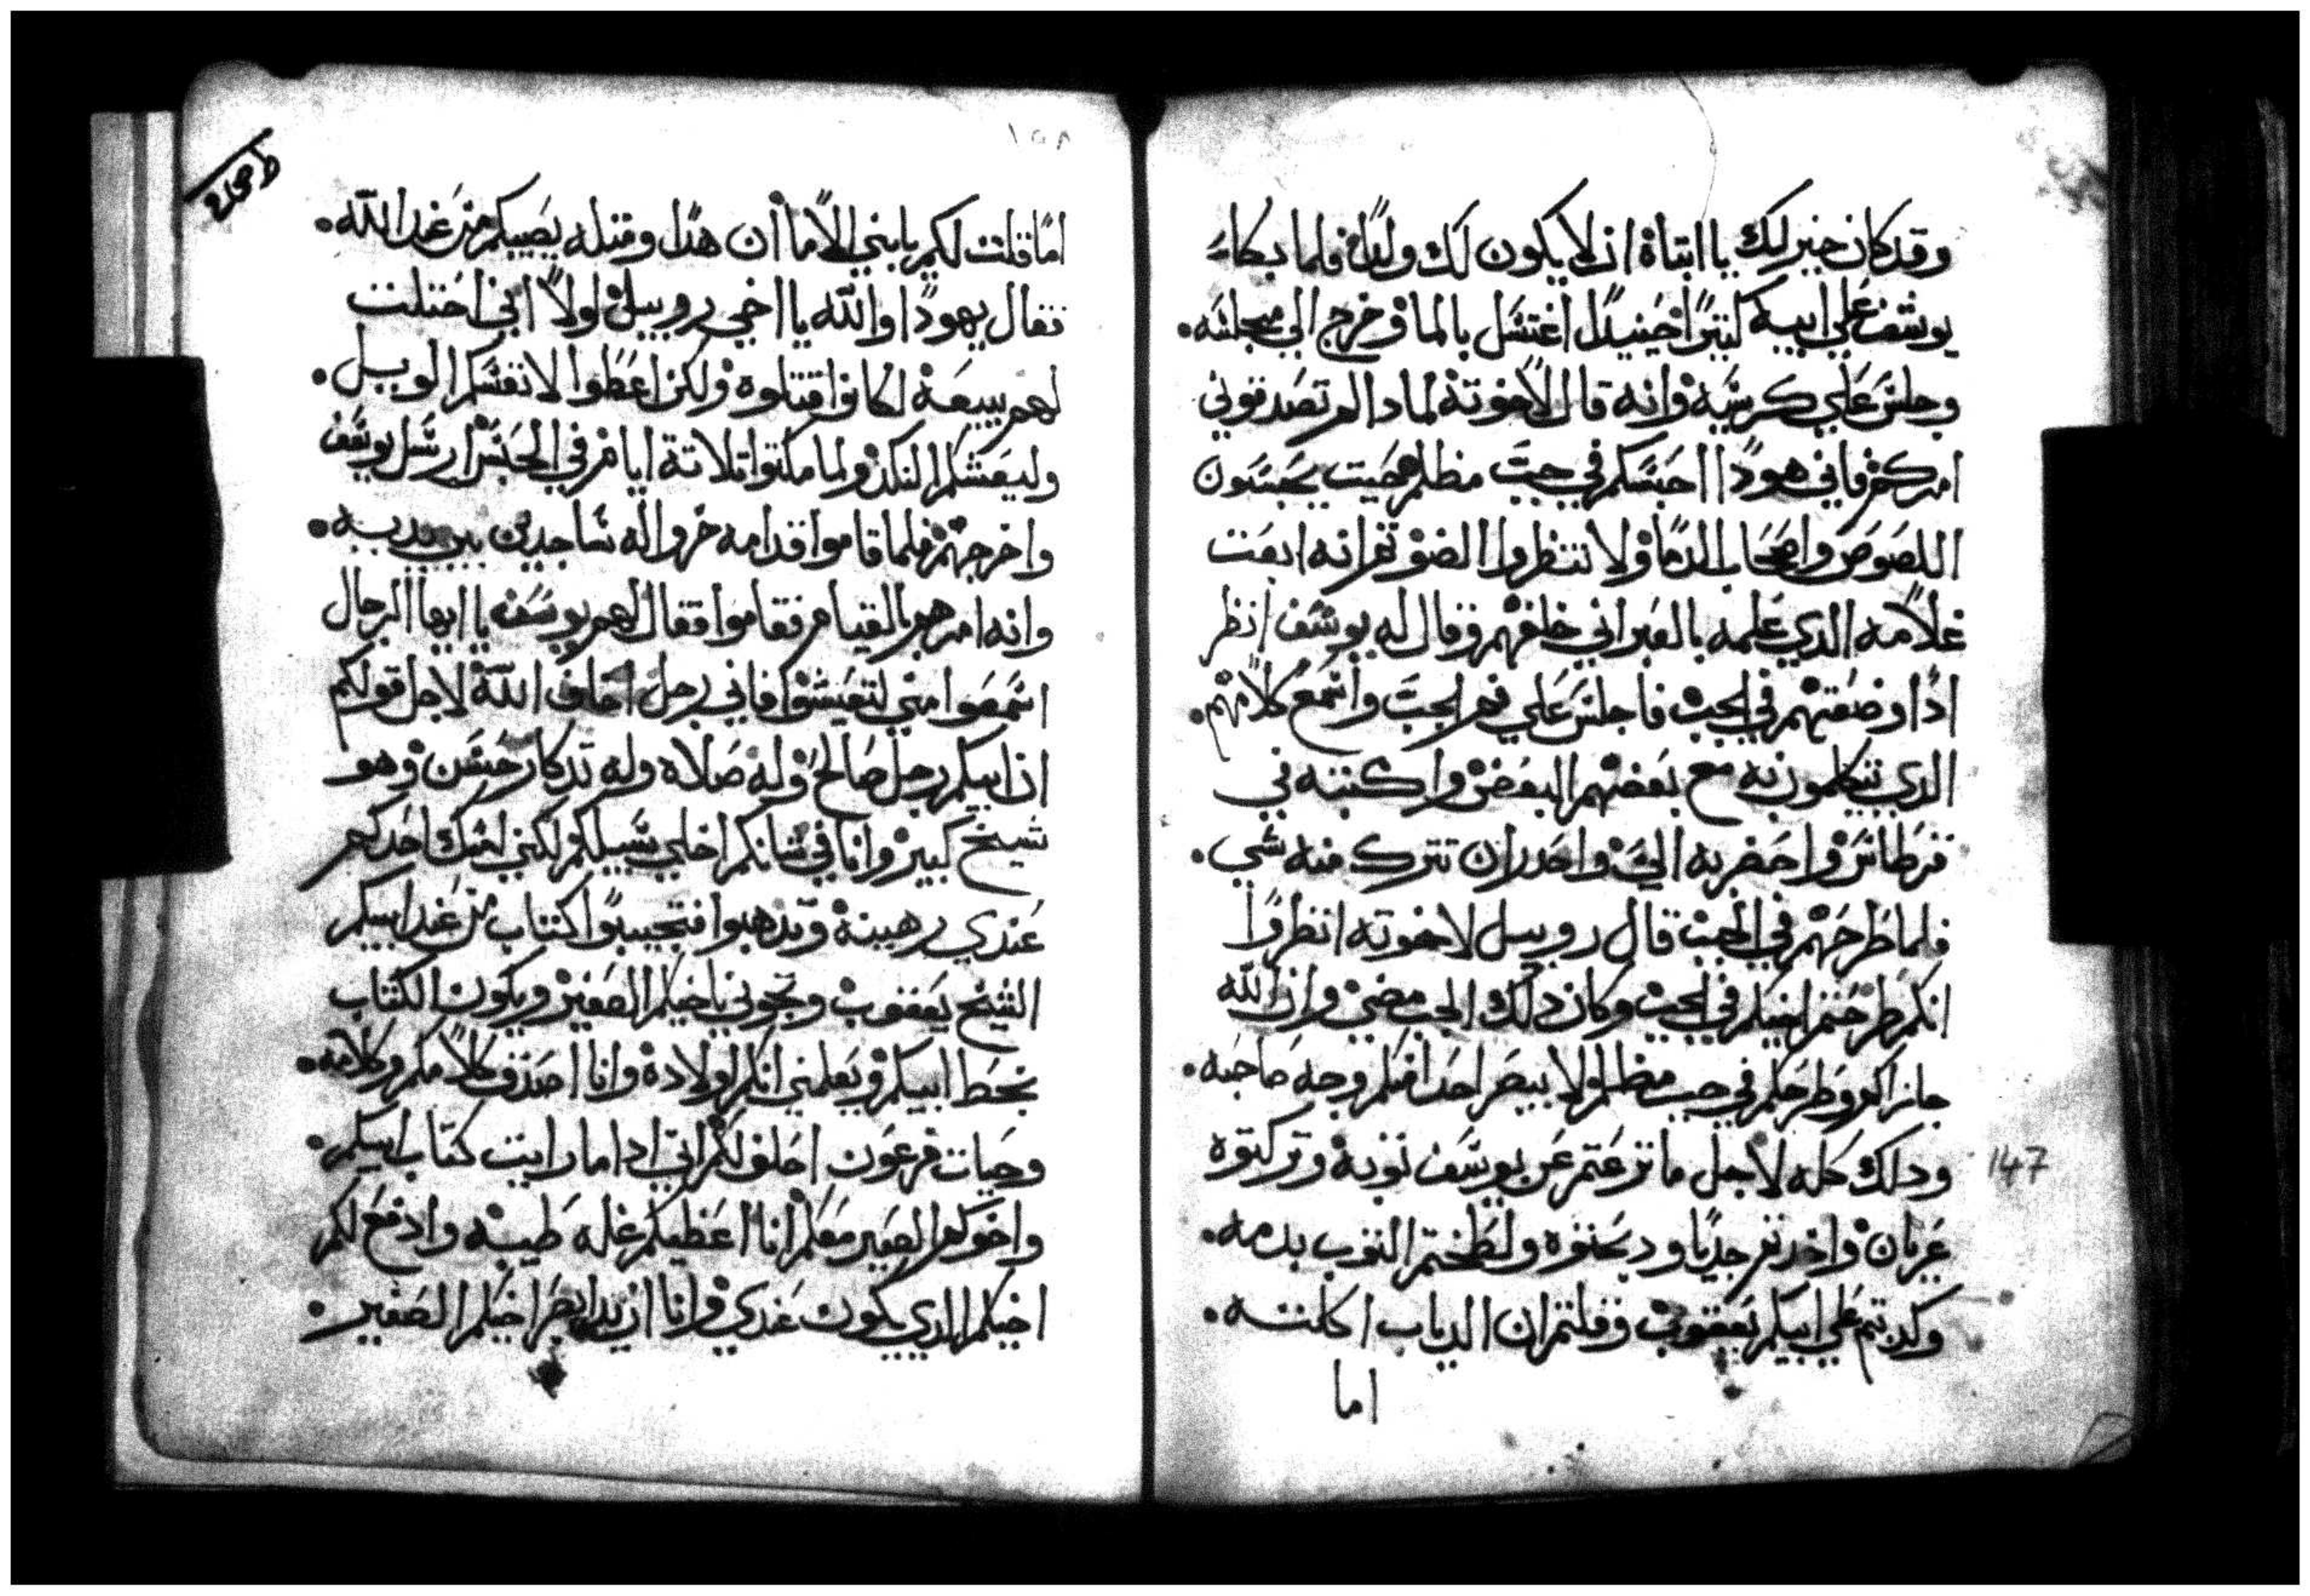 وقد كان خير لك يا ابتاة ان لا يكون لك ولدًا فلما بكاء
يوسف علي ابيه كتيرًا حينيدًا اغتسل بالما وخرج الي مجلسه.
وجلس علي كرسيه وانه قال لاخوتة لمادا لم تصدقوني
امركم فاني هودًا احبسكم في جب مظلم حيت يحبسون
اللصوص واصحاب الدما ولا تنظروا الضو تم انه ابعت
غلامه الدي علمه بالعبراني خلفهم وقال له يوسف انظر
ادا وضعتهم في الجب فاجلس علي فم الجب واسمع كلامهم.
الدي يتكلمون به مع بعضهم البعض واكتبه في
قرطاس واحضر به الي واحدر ان تترك منه شي.
فلما طرحهم في الجب قال روبيل لاخوته انظروا
انكم طرحتم ابنيكم في الجب وكان دلك الجب مضي وان الله
جازاكم وطرحكم في جب مظلم لا يبصر احدا منكم وجه صاحبه.
ودلك كله لاجل ما نزعتم عن يوسف توبه وتركتوه
عريان واخدتم جديًا ودبحتوه ولطختم التوب بدمه.
وكدبتم علي ابيكم يعقوب وقلتم ان الدياب اكلته.
اما
147
١٥٨
اما قلت لكم يا بني الاما ان هدا وقتله يصيبكم من عند الله.
فقال يهودا والله يا اخي روبيل لولا اني احتلت
لهم ببيعة لكانوا قتلوه ولكن اعطوا لانفسكم الويل.
وليعشكم النكد ولما مكتوا تلاتة ايام في الحبس ارسل يوسف
واخرجهم فلما قاموا قدامه خروا له ساجدين بين يديه.
وانه امرهم بالقيام فقاموا فقال لهم يوسف يا ايها الرجال
اسمعوا مني لتعيشوا فاني رجل اخاف الله لاجل قولكم
ان ابيكم رجل صالح وله صلاه وله تدكار حسن وهو
شيخ كبير وانا في شانكم اخلي سبيلكم لكني امسك احدكم
عندي رهينة وتدهبوا فتجيبوا كتاب من عند ابيكم
الشيخ يعقوب وتجوني باخيكم الصغير ويكون الكتاب
بخط ابيكم ويعلمني انكم اولادة وانا اصدق كلامكم وكلامه.
وحيات فرعون احلف لكم اني ادا ما رايت كتاب ابيكم.
واخوكم الصغير معكم انا اعطيكم غله طيبه وادفع لكم
اخيكم الدي يكون عندي وانا اريد ابصر اخيكم الصغير.